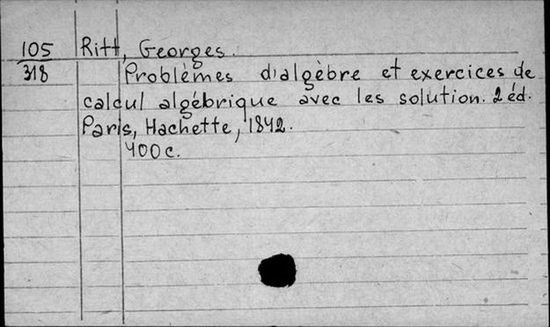 105 Ritt, Georges.
318 Problèmes d'algèbre et exercices de
calcul algébrique avec les solution. 2 éd.
Paris, Hachette, 1842.
400 c.